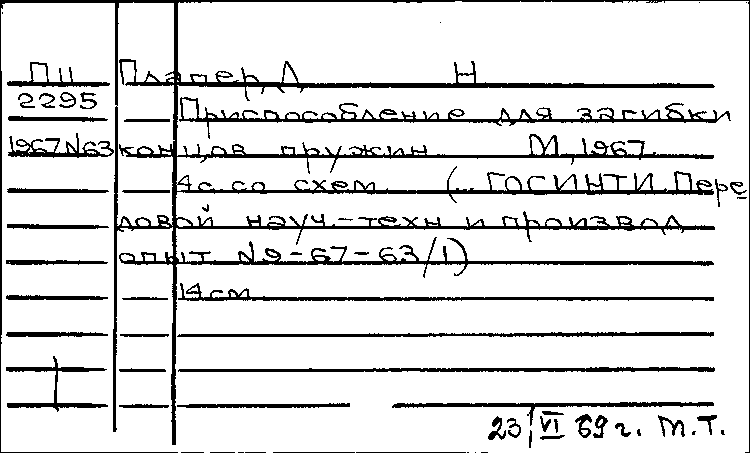 ПII Плапер, Л Н
2295 Приспособление для загибки
1967 N63 концов пружин М, 1967.
4 с. со схем. (... ГОСИНТИ. Пере
довой науч.-техн и производ
опыт. N 9-67-63/1)
14 см
23/VI 69 г. М.Т.